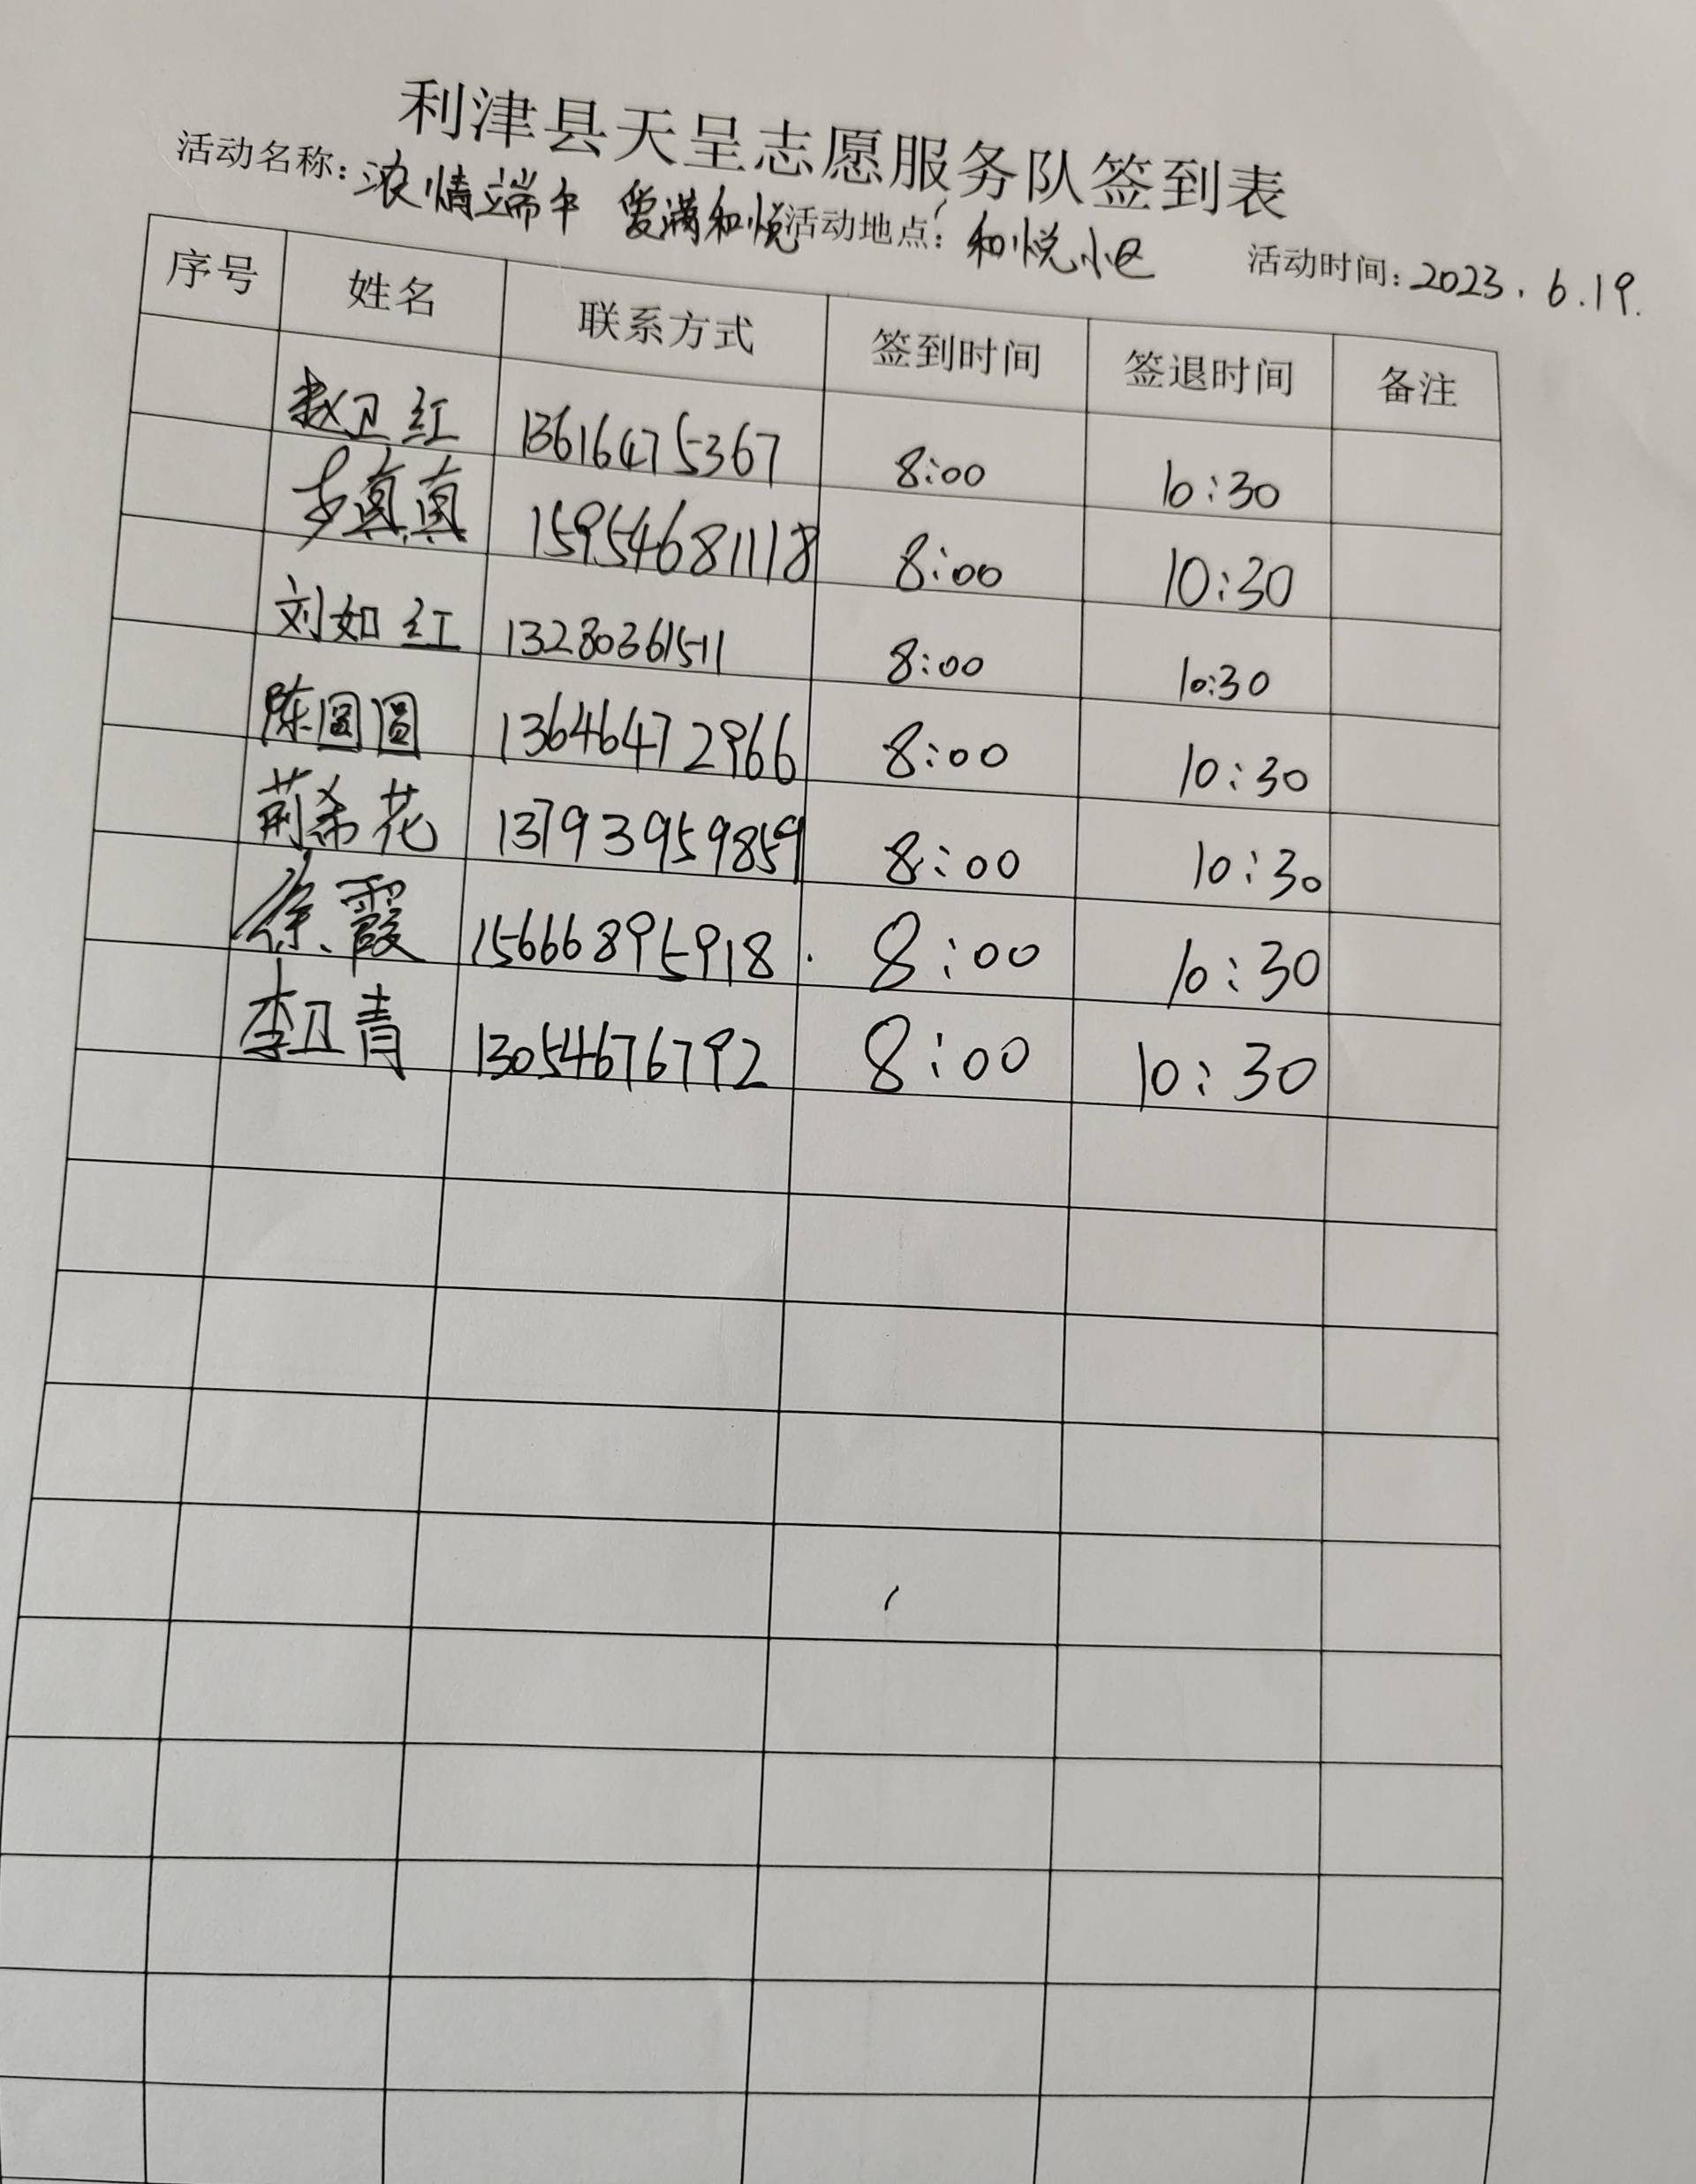 利津县天呈志愿服务队签到表
活动名称：浓情端午 爱满和悦 活动地点：和悦小区 活动时间：2023.6.19.
序号 姓名 联系方式 签到时间 签退时间 备注
赵卫红 13616475367 8:00 10:30
步真真 15954681118 8:00 10:30
刘如红 13280361511 8:00 10:30
陈圆圆 13646472966 8:00 10:30
荆希花 13793959859 8:00 10:30
徐霞 15666895918 8:00 10:30
李卫青 13054676792 8:00 10:30